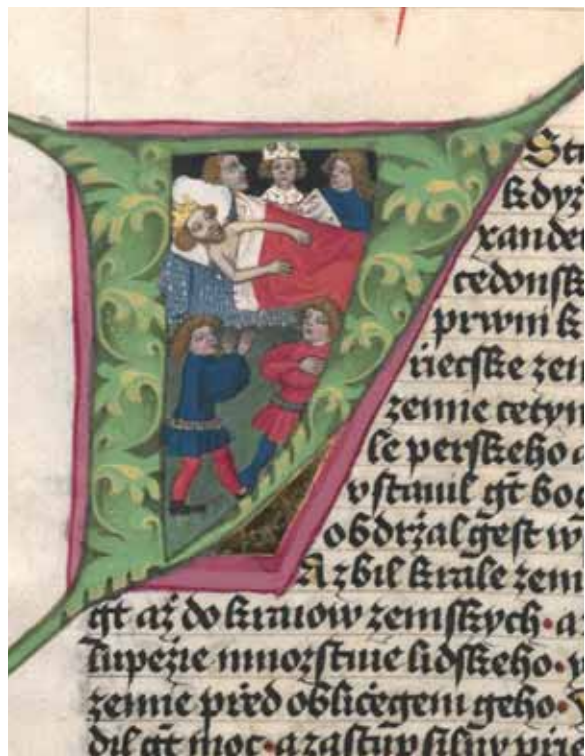 Sta
kdyż
xander
cedonsk
prwni k
riecske zem
zemie cetyn
le perskeho a
vstauil gt bo
obdrżal gest w
A zbil krale zem
gt aż do krauow zemskych · a
lupeżie mnozstwie lidskeho ·
zemie před obliċegem geho ·
dil gt moc · a zastup